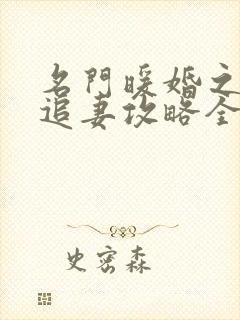 名門暖婚之
追妻攻略全
史密森